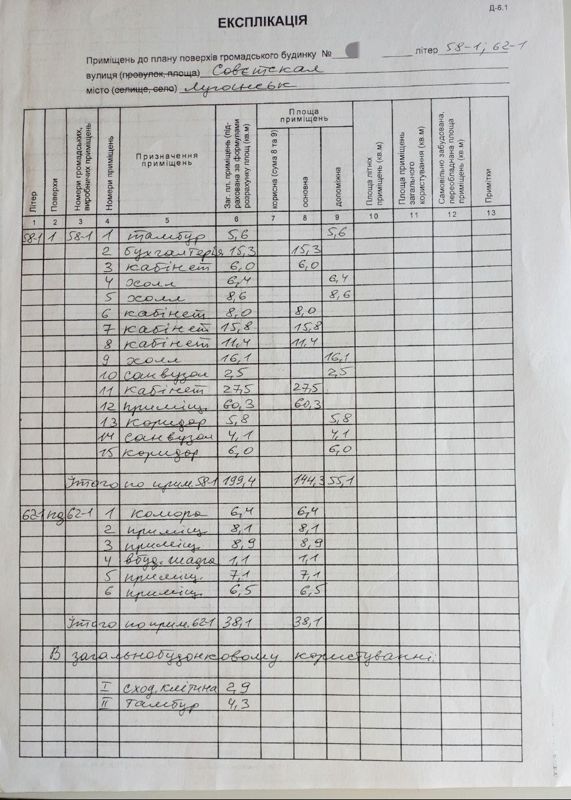 Д-6.1
ЕКСПЛІКАЦІЯ
Приміщень до плану поверхів громадського будинку № літер 58-1; 62-1
вулиця (провулок, площа) Совєтская
місто (селище, село) Луганськ
Літер | Поверхи | Номери громадських, виробничих приміщень | Номери приміщень | Призначення приміщень | Заг. пл. приміщень (підрахована за формулами розрахунку площ (кв.м) | Площа приміщень | корисна (сума 8 та 9) | основна | допоміжна | Площа літніх приміщень (кв.м) | Площа приміщень загального користування (кв.м) | Самовільно забудована, переобладнана площа приміщень (кв.м) | Примітки
1 2 3 4 5 6 7 8 9 10 11 12 13
58-1 1 58-1 1 тамбур 5,6 5,6
2 бухгалтерія 15,3 15,3
3 кабінет 6,0 6,0
4 холл 6,4 6,4
5 холл 8,6 8,6
6 кабінет 8,0 8,0
7 кабінет 15,8 15,8
8 кабінет 11,4 11,4
9 холл 16,1 16,1
10 санвузол 2,5 2,5
11 кабінет 27,5 27,5
12 приміщ. 60,3 60,3
13 коридор 5,8 5,8
14 санвузол 4,1 4,1
15 коридор 6,0 6,0
Итого по прим. 58-1 199,4 144,3 55,1
62-1 пд 62-1 1 комора 6,4 6,4
2 приміщ. 8,1 8,1
3 приміщ. 8,9 8,9
4 вбуд. шафа 1,1 1,1
5 приміщ. 7,1 7,1
6 приміщ. 6,5 6,5
Итого по прим. 62-1 38,1 38,1
В загальнобудонковому користуванні:
I сход. клітина 2,9
II тамбур 4,3